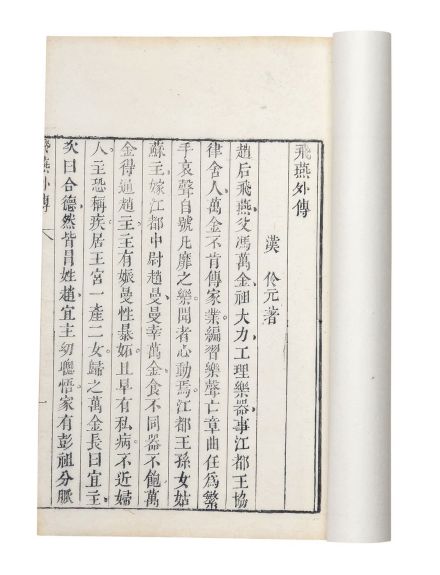 飛燕外傳
漢 伶元著
趙后飛燕父馮萬金祖大力工理樂器事江都王協
律舍人萬金不肯傳家業編習樂聲亡章曲任爲繁
手哀聲自號凡靡之樂聞者心動焉江都王孫女姑
蘇主嫁江都中尉趙曼曼幸萬金食不同器不飽萬
金得通趙主主有娠曼性暴妬且早有私病不近婦
人主恐稱疾居王宮一產二女歸之萬金長曰宜主
次曰合德然皆冒姓趙宜主幼聰悟家有彭祖分脈
飛燕外傳
一